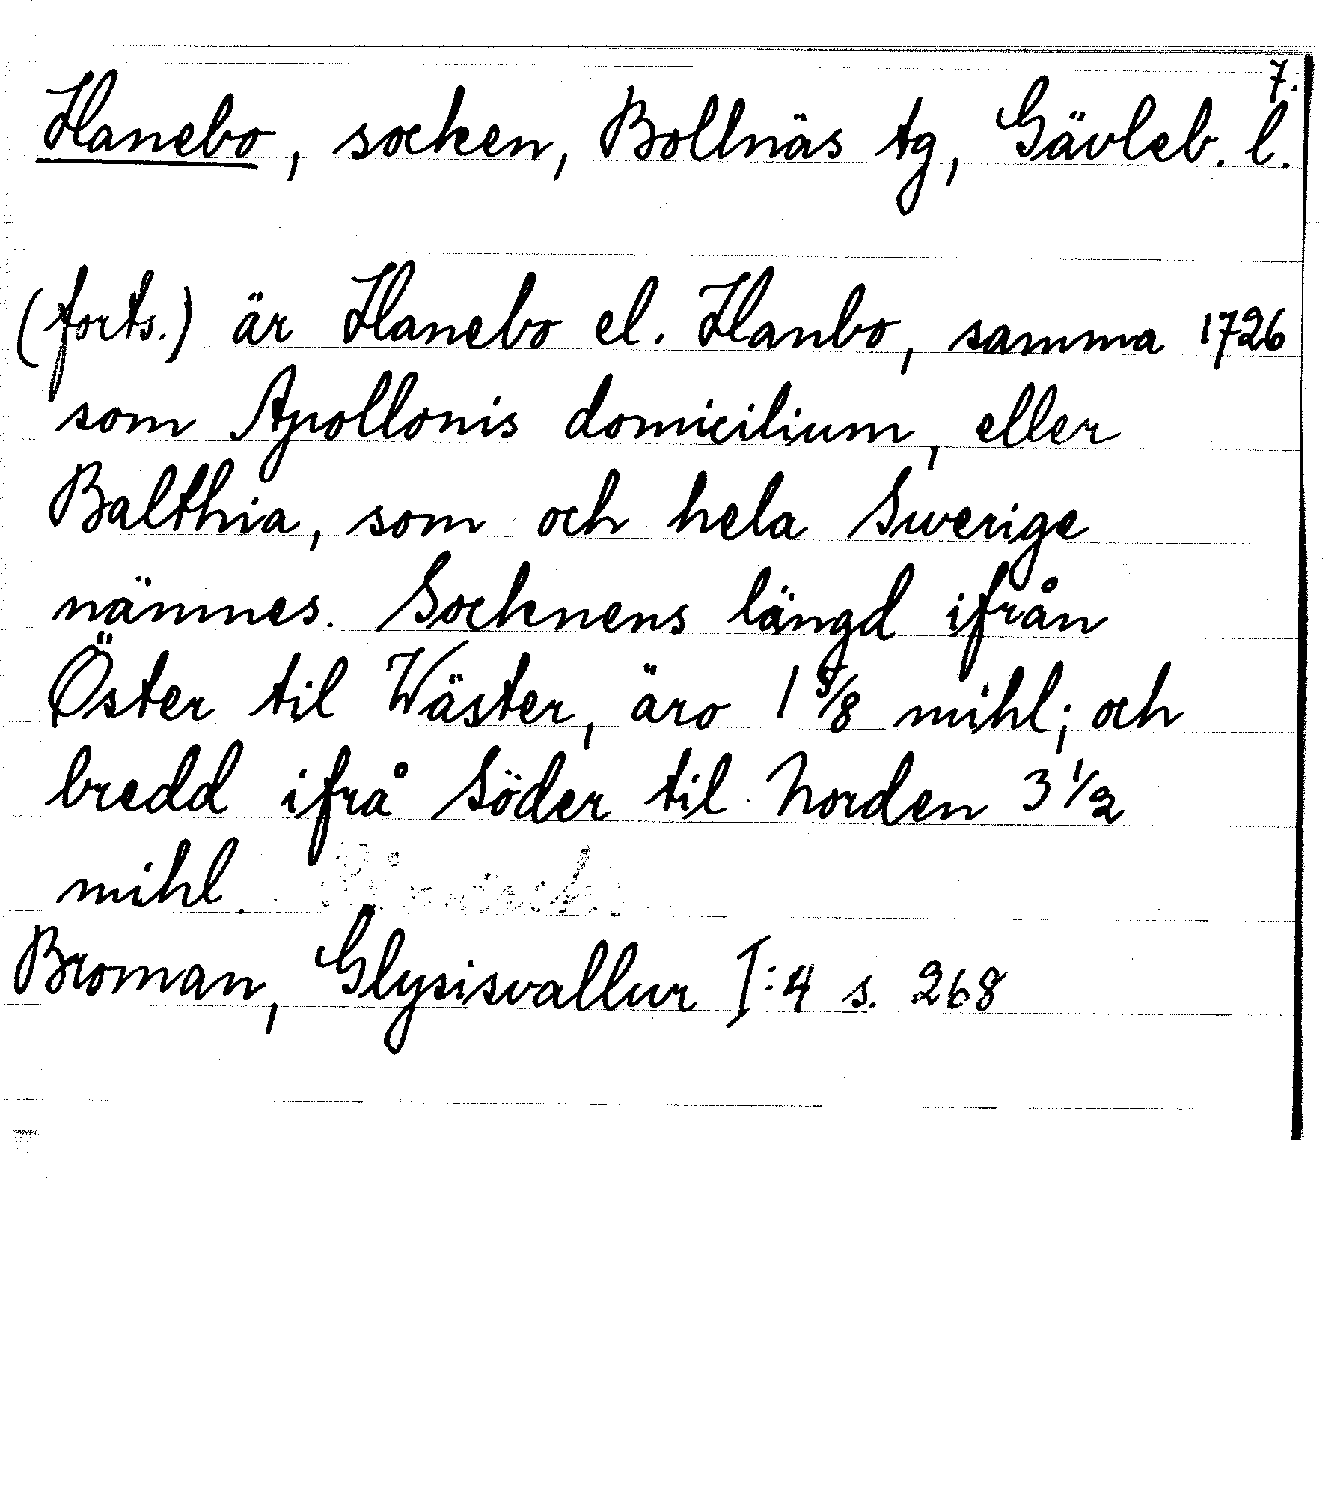 7.
Hanebo, socken, Bollnäs tg, Gävleb. l.
(forts.) är Hanebo el. Hanbo, samma 1726
som Apollonis domicilium, eller
Balthia, som och hela Swerige
nämnes. Socknens längd ifrån
Öster til Wäster, äro 1 5/8 mihl; och
bredd ifrå Söder til Norden 3 1/2
mihl.
Broman, Glysisvallur I:4 s. 268